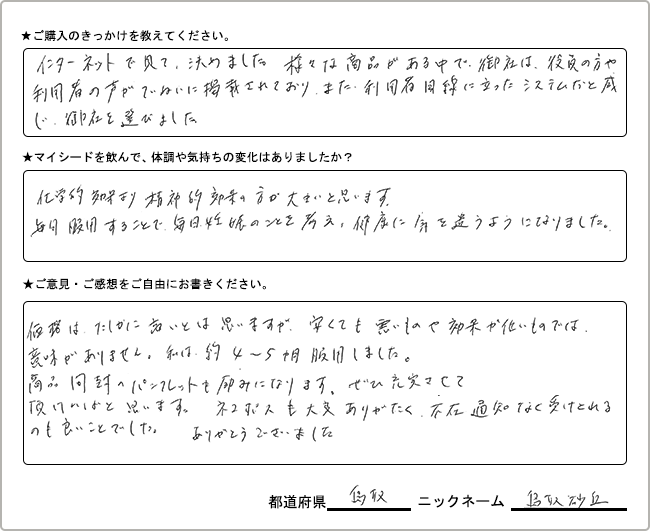 ★ご購入のきっかけを教えてください。
インターネットで見て、決めました。様々な商品がある中で、御社は、役員の方や
利用者の声がていねいに掲載されており、また、利用者目線に立ったシステムだと感
じ、御社を選びました
★マイシードを飲んで、体調や気持ちの変化はありましたか？
化学的効果より精神的効果の方が大きいと思います。
毎日服用することで、毎日妊娠のことを考え、健康に気を遣うようになりました。
★ご意見・ご感想をご自由にお書きください。
価格は、たしかに高いとは思いますが、安くても悪いものや効果が低いものでは、
意味がありません。私は、約4～5ヶ月服用しました。
商品同封のパンフレットも励みになります。ぜひ充実させて
頂ければと思います。ネコポスも大変ありがたく、不在通知なく受けとれる
のも良いことでした。ありがとうございました
都道府県 鳥取 ニックネーム 鳥取砂丘